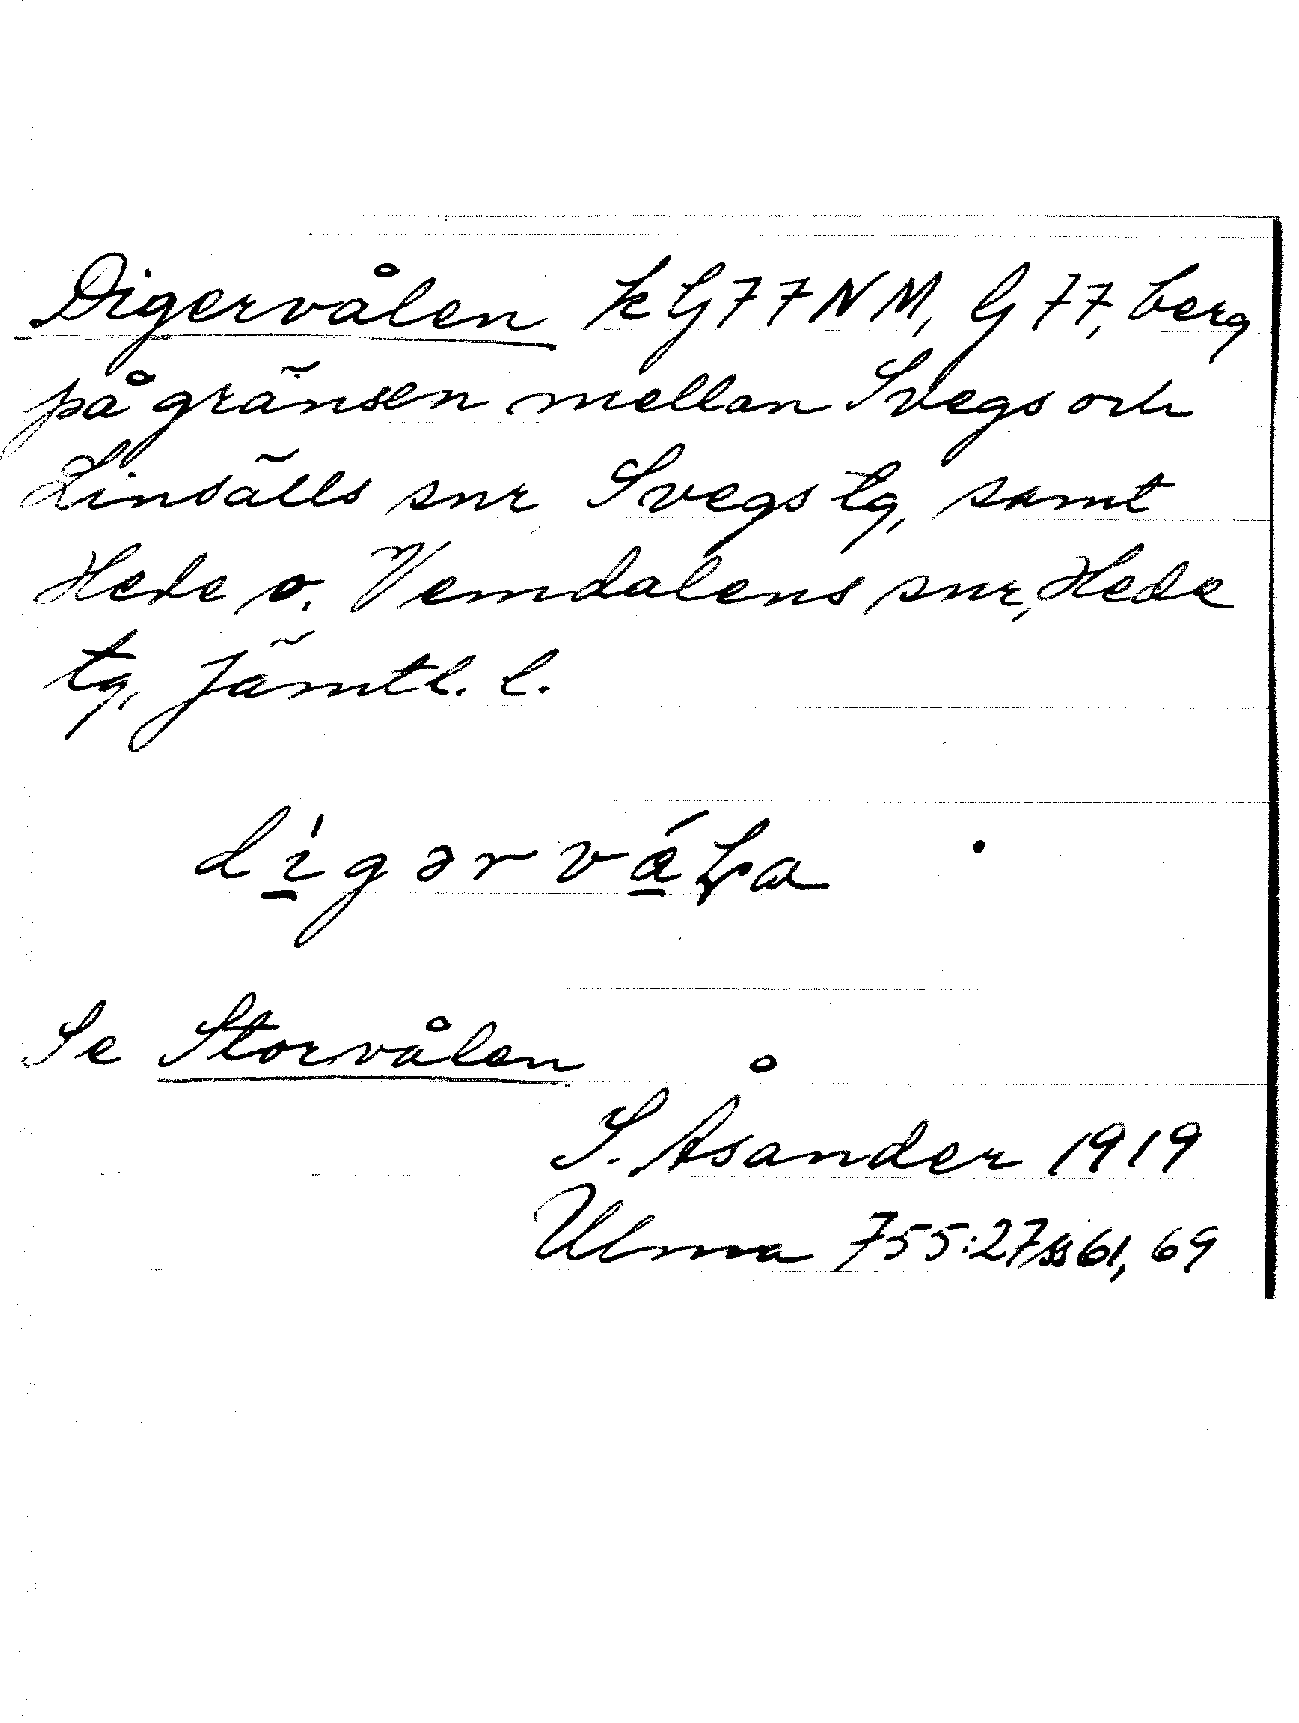 Digervålen k G77NM, G 77, berg
på gränsen mellan Svegs och
Linsälls snr Svegs tg, samt
Hede o. Vemdalens snr, Hede
tg, Jämtl. l.
digərv
Se Storvålen
S. Åsander 1919
Ulma 755:27 ss 61, 69